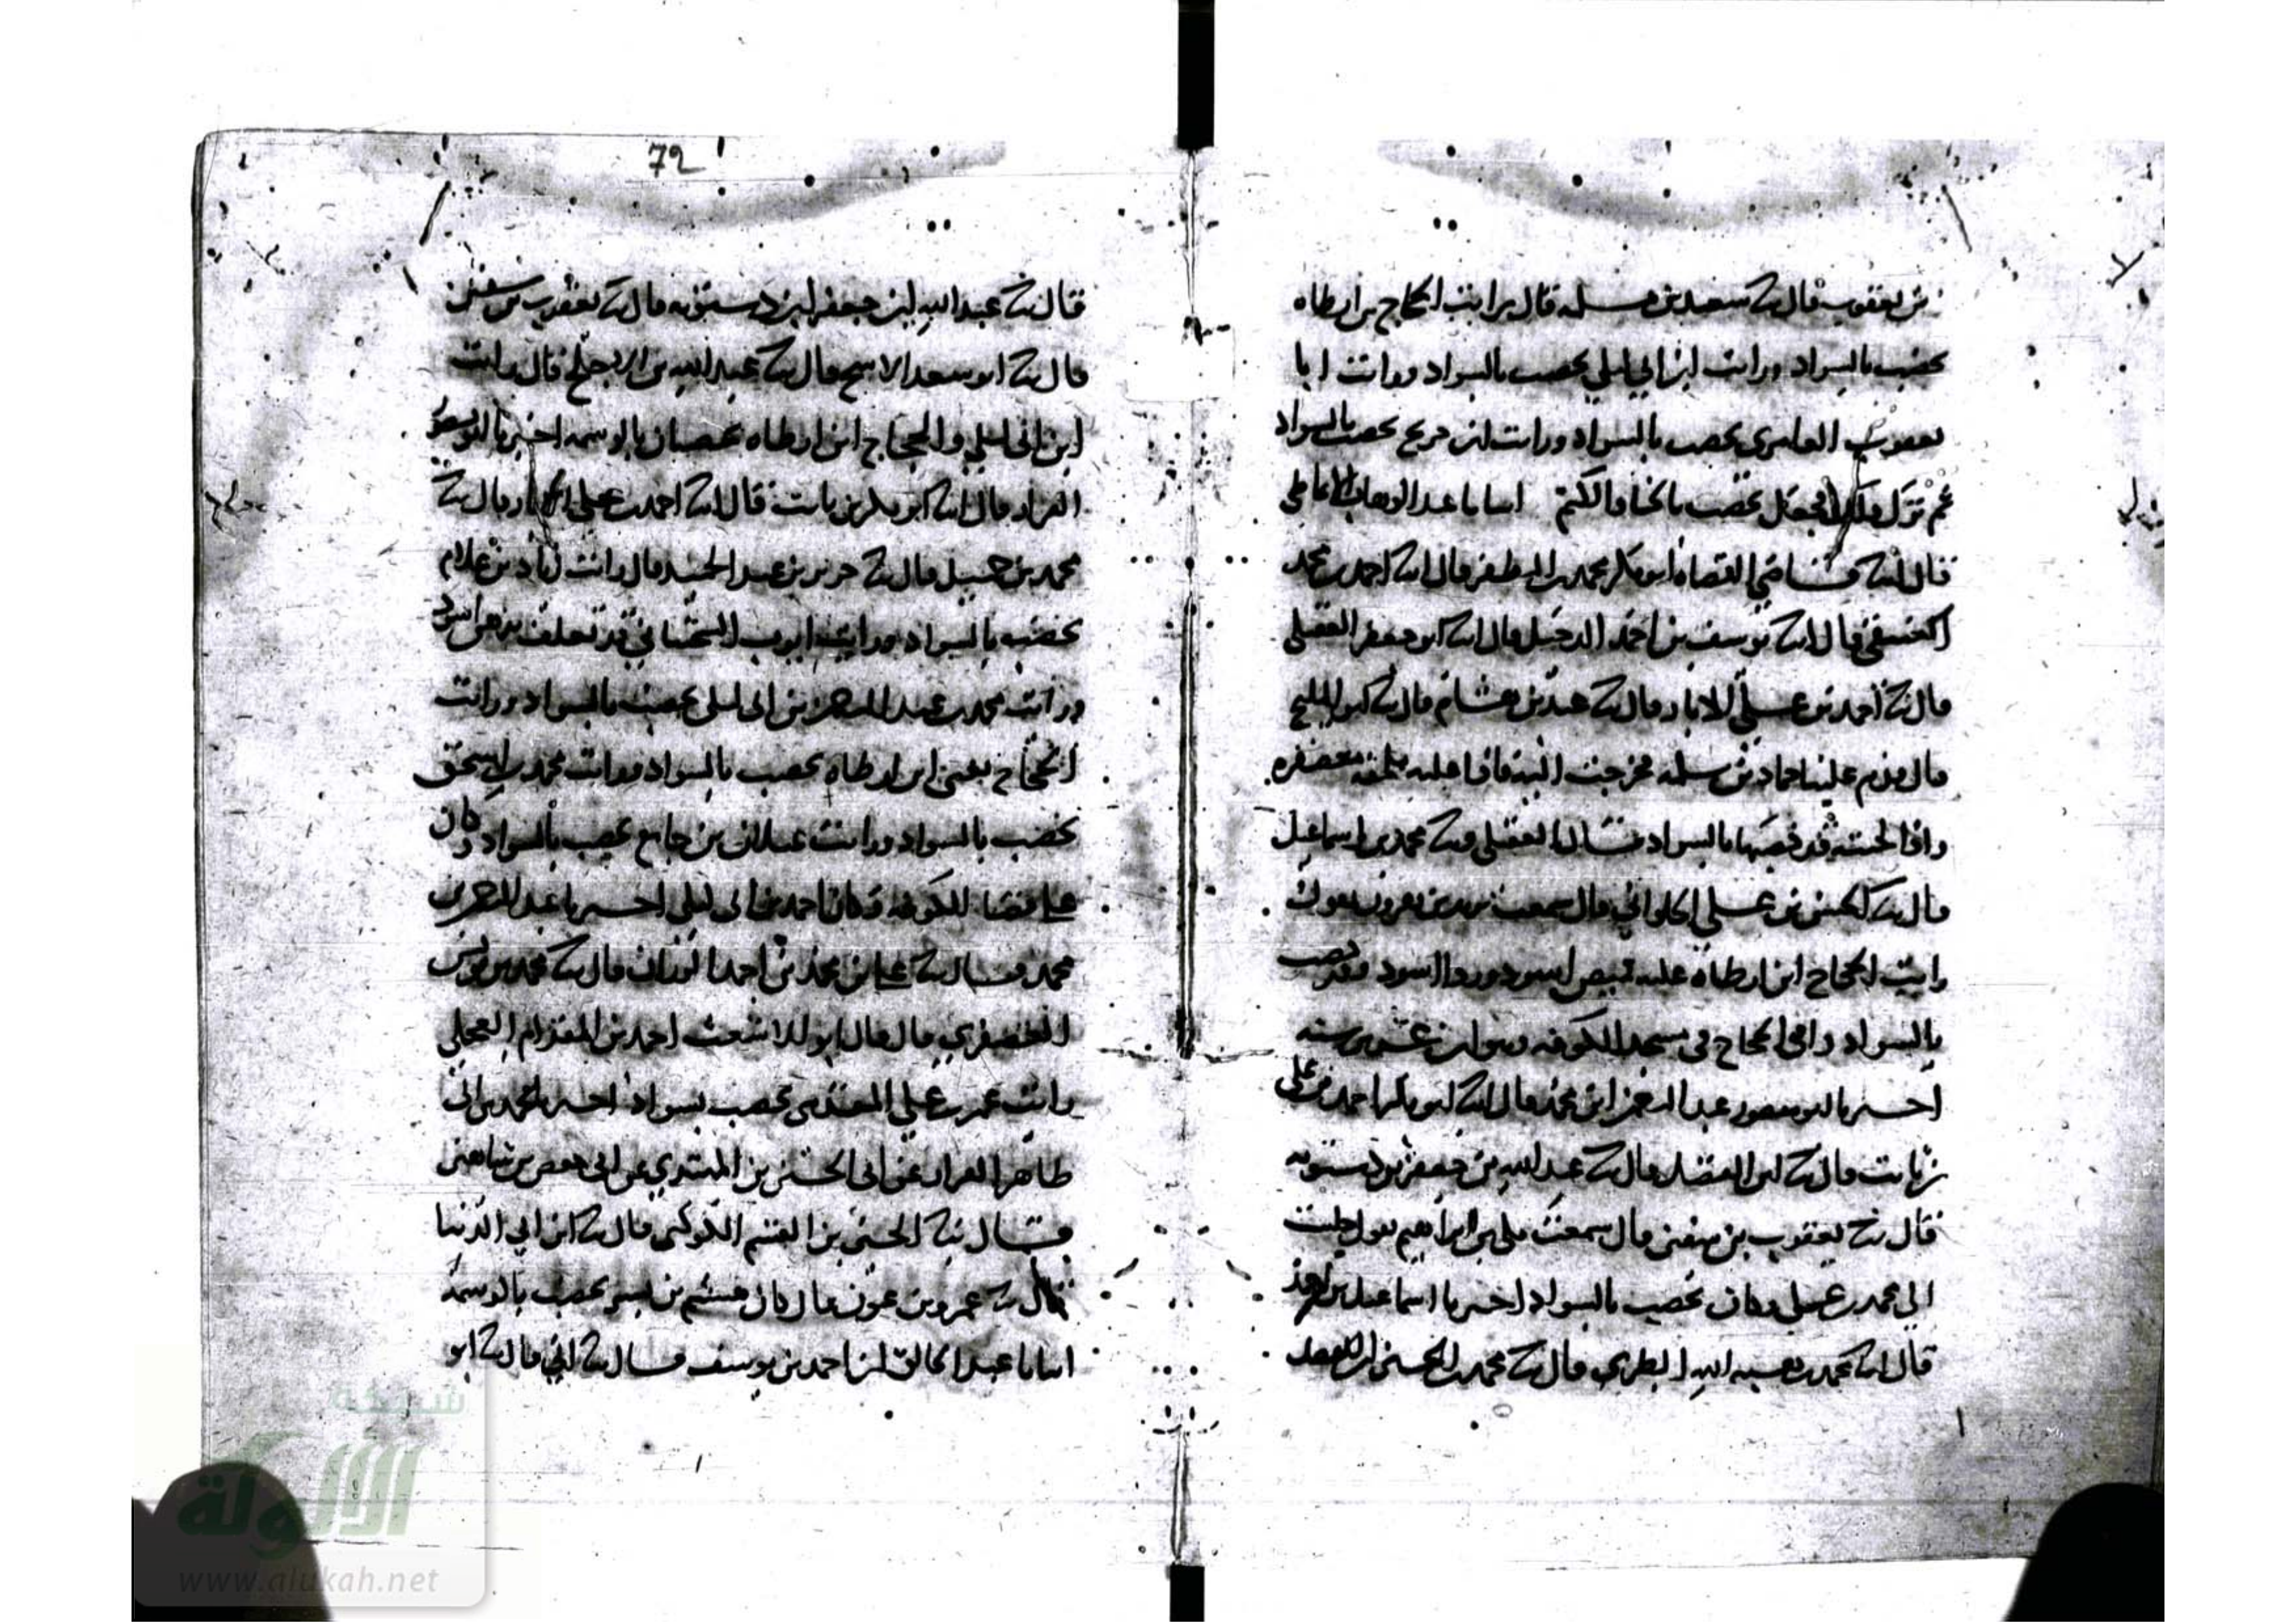 بن يعقوب قال ثنا سعيد بن مسلمه قال رايت الحجاج بن ارطاه
يخضب بالسواد ورايت ابن ابي ليلي يخضب بالسواد ورايت ابا
يعقوب العامري يخضب بالسواد ورايت ابن جريج يخضب بالسواد
ثم ترك يخضب بالحنا والكتم انبانا عبد الوهاب الانماطي
قال انا قاضي القضاه ابو بكر محمد بن المظفر قال انا احمد بن محمد
العتيقي قال انا يوسف بن احمد الدخيل قال انا ابو جعفر العقيلي
قال ثنا احمد بن علي الابار قال ثنا هشام قال ثنا ابو المليح
قال قدم علينا حماد بن سلمه فخرجت اليه فاذا عليه معصفره
واذا لحيته قد خضبها بالسواد قال العقيلي وثنا محمد بن اسماعيل
قال ثنا الحسن بن علي الحلواني قال سمعت يزيد بن هرون يقول
رايت الحجاج ابن ارطاه عليه قميص اسود وردا اسود وقد خضب
بالسواد وافتى الحجاج في مسجد الكوفه وهو ابن سنه
اخبرنا ابو منصور عبد الرحمن ابن محمد قال انا ابو بكر احمد بن علي
بن ثابت قال ثنا ابن الفضل قال ثنا عبد الله بن جعفر بن درستويه
قال ثنا يعقوب بن سفين قال سمعت مكي بن ابراهيم يقول جلست
الى محمد بن وكان يخضب بالسواد اخبرنا اسماعيل بن احمد
قال انا محمد بن هبه الله الطبري قال ثنا محمد بن الحسين ابن الفضل
72
قال ثنا عبد الله ابن جعفر ابن درستويه قال ثنا يعقوب بن سفين
قال ثنا ابو سعيد الاشج قال ثنا عبد الله بن الاجلح قال رايت
ابن ابي ليلي والحجاج ابن ارطاه يخضبان بالوسمه اخبرنا ابو منصور
القزاز قال انا ابو بكر بن ثابت قال انا احمد بن علي قال ثنا
محمد بن قال ثنا جرير بن عبد الحميد قال رايت
يخضب بالسواد ورايت ايوب السختياني
ورايت محمد بن عبد الرحمن بن ابي ليلى يخضب بالسواد ورايت
الحجاج يعني ابن ارطاه يخضب بالسواد ورايت محمد بن اسحق
يخضب بالسواد ورايت غيلان بن جامع يخضب بالسواد وكان
على قضا الكوفه وكان احمد بن ابي ليلى اخبرنا عبد الرحمن بن
محمد قال ثنا علي بن محمد بن احمد الوزان قال ثنا محمد بن يونس
العصفري قال قال ابو الاشعث احمد بن المقدام العجلي
رايت عمر بن علي المقدمي يخضب بسواد اخبرنا محمد بن ابي
طاهر البزاز عن ابي الحسين بن المهتدي عن ابي حفص بن شاهين
قال ثنا الحسين بن القسم الكوكبي قال ثنا ابن ابي الدنيا
قال ثنا عمرو بن عون قال كان هشيم بن بشير يخضب بالوسمه
انبانا عبد الخالق ابن احمد بن يوسف قال ثنا ابي قال ثنا ابو
شبكة
الألوكة
www.alukah.net